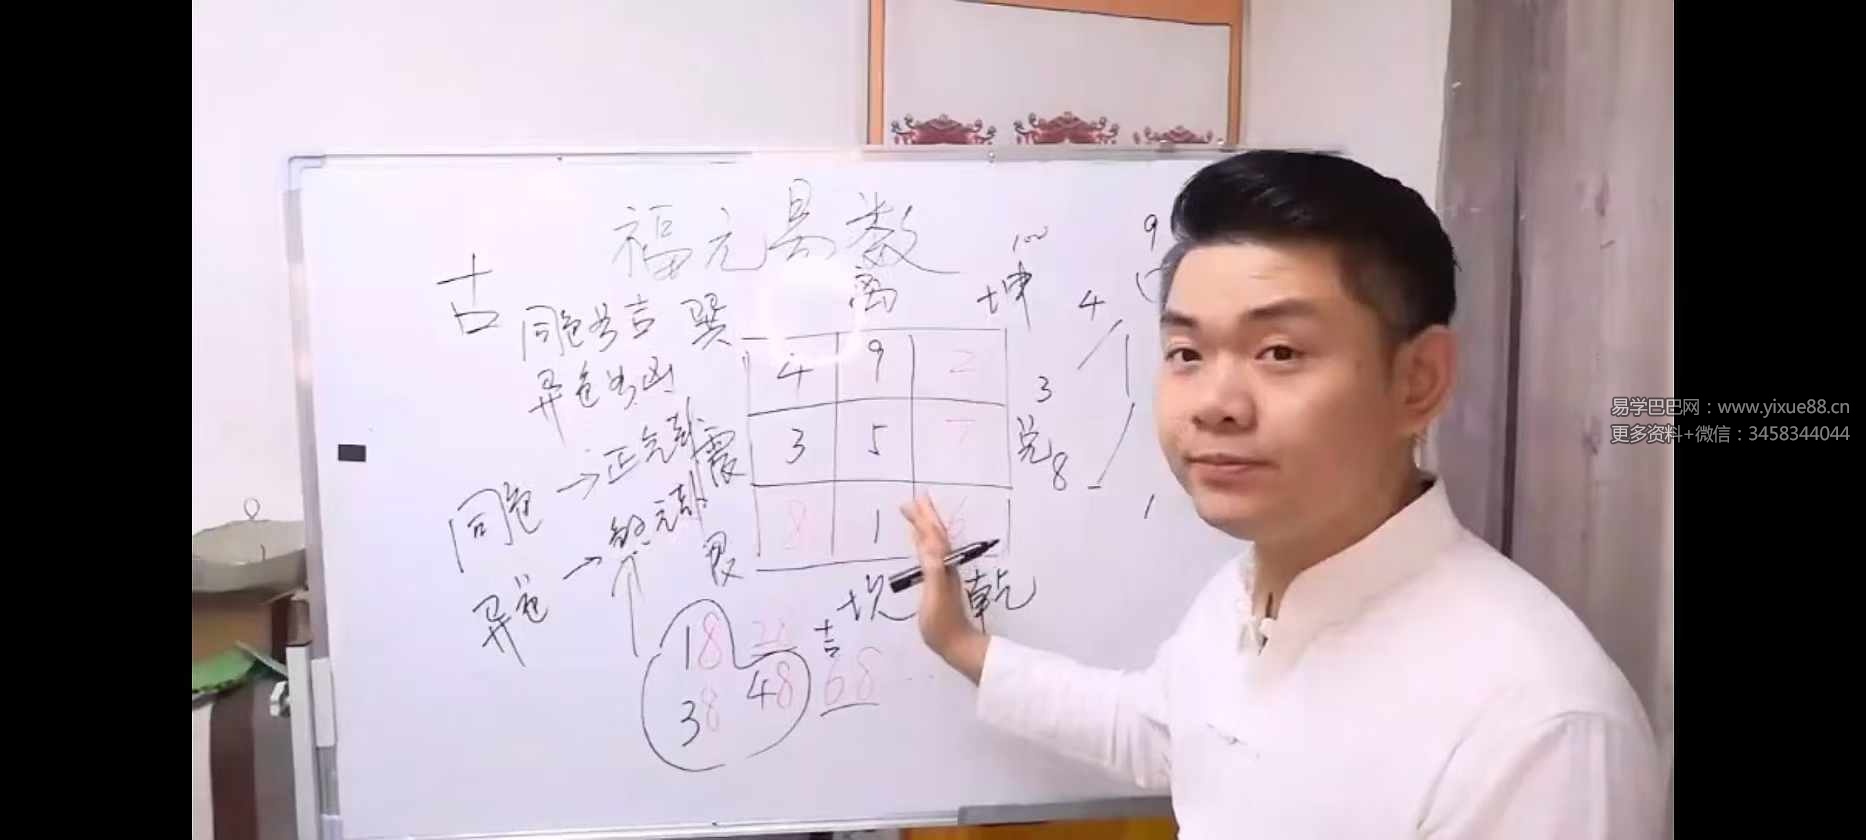 福元易数
离
坤
100
9
4
古
同色为吉
巽
异色为凶
4 9 2
3
同色→正元卦
震
3 5 7
兑
8
异色→
艮
8 1 6
1
坎
乾
18
吉
38
48
68
易学巴巴网：www.yixue88.cn
更多资料+微信：3458344044